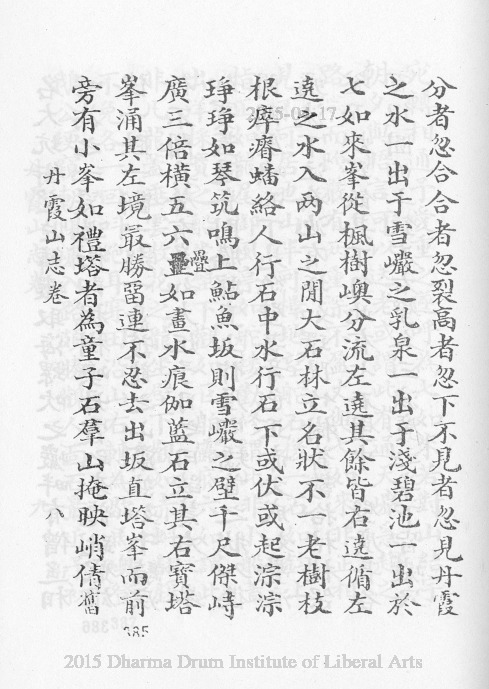 分者忽合合者忽裂高者忽下不見者忽見丹霞
之水一出于雪巖之乳泉一出于淺碧池一出於
七如來峯從楓樹嶼分流左遶其餘皆右遶循左
遶之水入两山之閒大石林立名狀不一老樹枝
根㾄瘠蟠絡人行石中水行石下或伏或起淙淙
琤琤如琴筑鳴上鮎魚坂則雪巖之壁千尺傑峙
廣三倍橫五六疊如畫水痕伽藍石立其右寶塔
疊
峯涌其左境最勝畱連不忍去出坂直塔峯而前
旁有小峯如禮塔者為童子石羣山掩映峭倩舊
丹霞山志卷 八
385
2015 Dharma Drum Institute of Liberal Arts